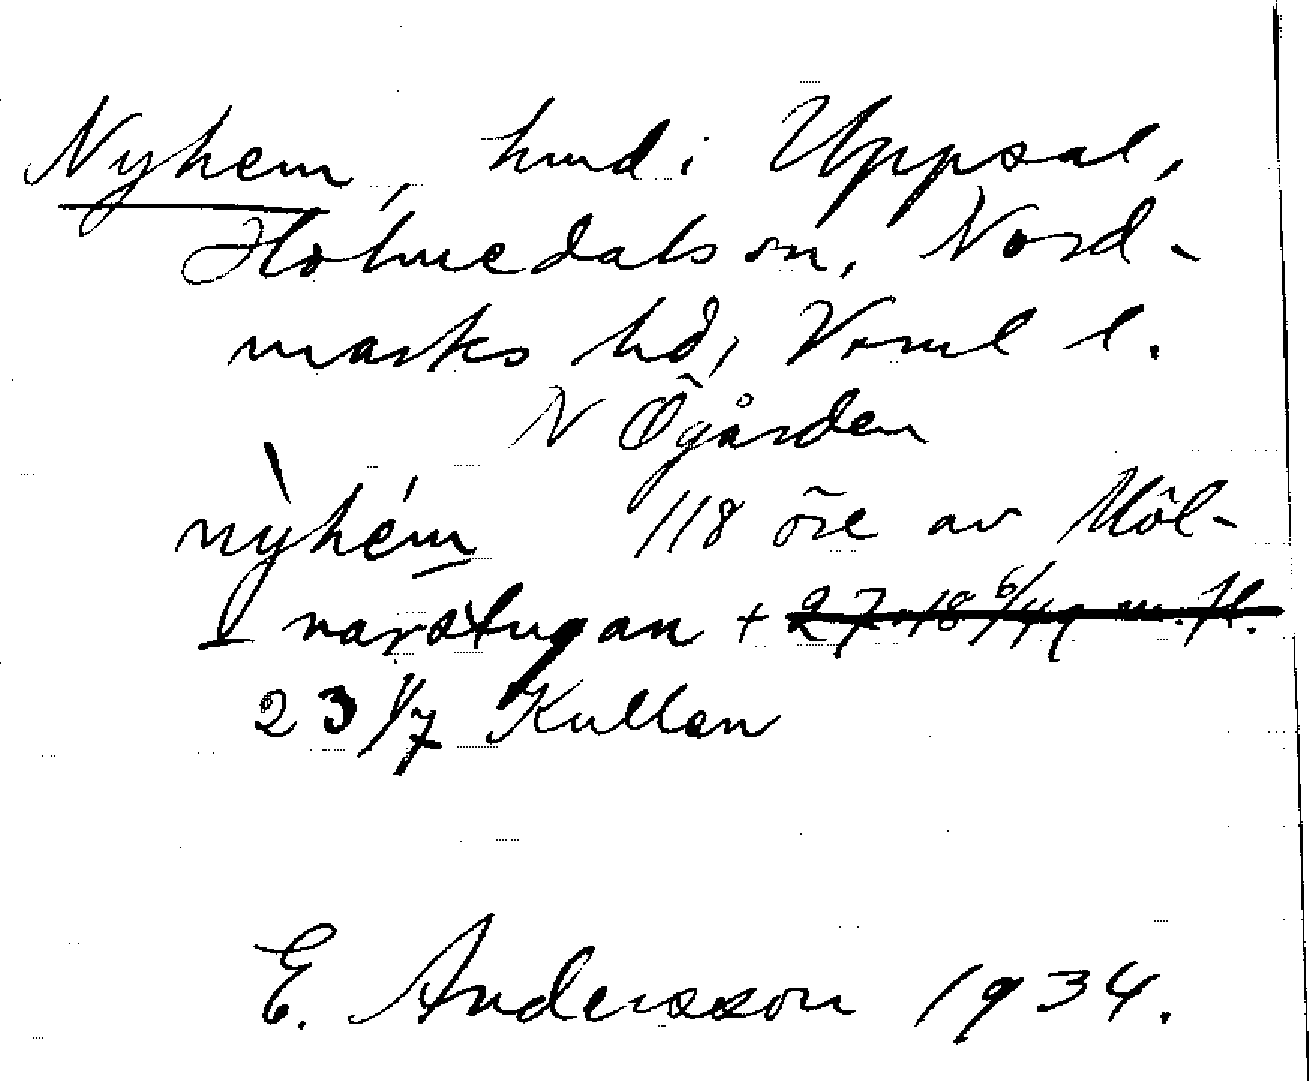 Nyhem, hmd i Uppsal,
Holmedals sn, Nord-
marks hd, Verml l.
N Ögården
nỳhém 118 öre av Möl-
I narstugan +
23 1/7 Kullen
E. Andersson 1934.